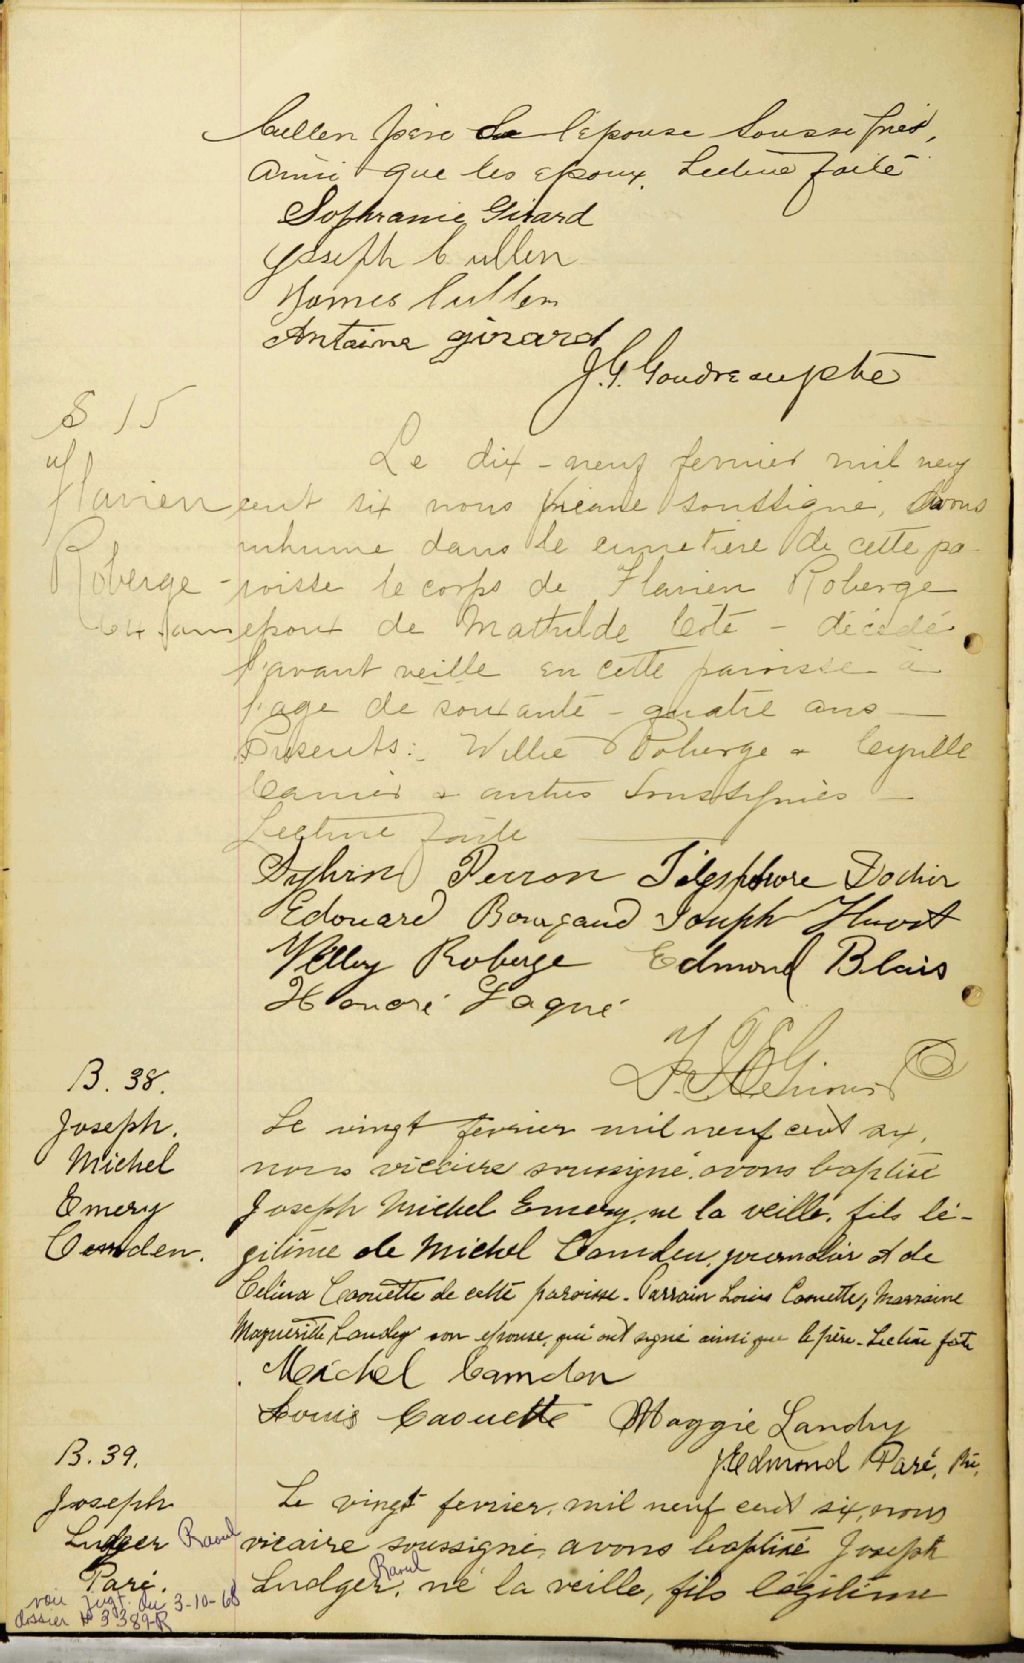 Cullen père de l'épouse Soussignés,
ainsi que les epoux. Lecture faite
Sophranie Girard
Joseph Cullen
James Cullen
Antoine girard
J. G. Goudreau ptre
S 15
Flavien
Roberge
64 ans
Le dix-neuf fevrier mil neuf
cent six nous vicaire soussigné, avons
inhumé dans le cimetière de cette pa-
roisse le corps de Flavien Roberge
epoux de Mathilde Coté - décédé
l'avant veille en cette paroisse à
l'age de soixante-quatre ans —
Présents: Willie Roberge & Cyrille
Carrier & autres Soussignés —
Lecture faite
Sylvin Perron Télesphore
Edouard Joseph Huot
Willey Roberge Edmond Blais
Honoré Gagné
B. 38.
Joseph.
Michel
Emery
Camden.
Le vingt fevrier mil neuf cent six,
nous vicaire soussigné avons baptisé
Joseph Michel Emery, né la veille, fils lé-
gitime de Michel Camden, journalier et de
Celina Caouette de cette paroisse. Parrain Louis Caouette, Marraine
Marguerite Landry son epouse, qui ont signé ainsi que le père. Lecture faite
Michel Camden
Louis Caouette Maggie Landry
J. Edmond Paré, Ptr.
B. 39.
Joseph
Ludger Raoul
Paré.
voir Jugt. du 3-10-68
dossier No 3389-R
Le vingt fevrier, mil neuf cent six, nous
vicaire soussigné, avons baptisé Joseph
Raoul
Ludger, né la veille, fils légitime